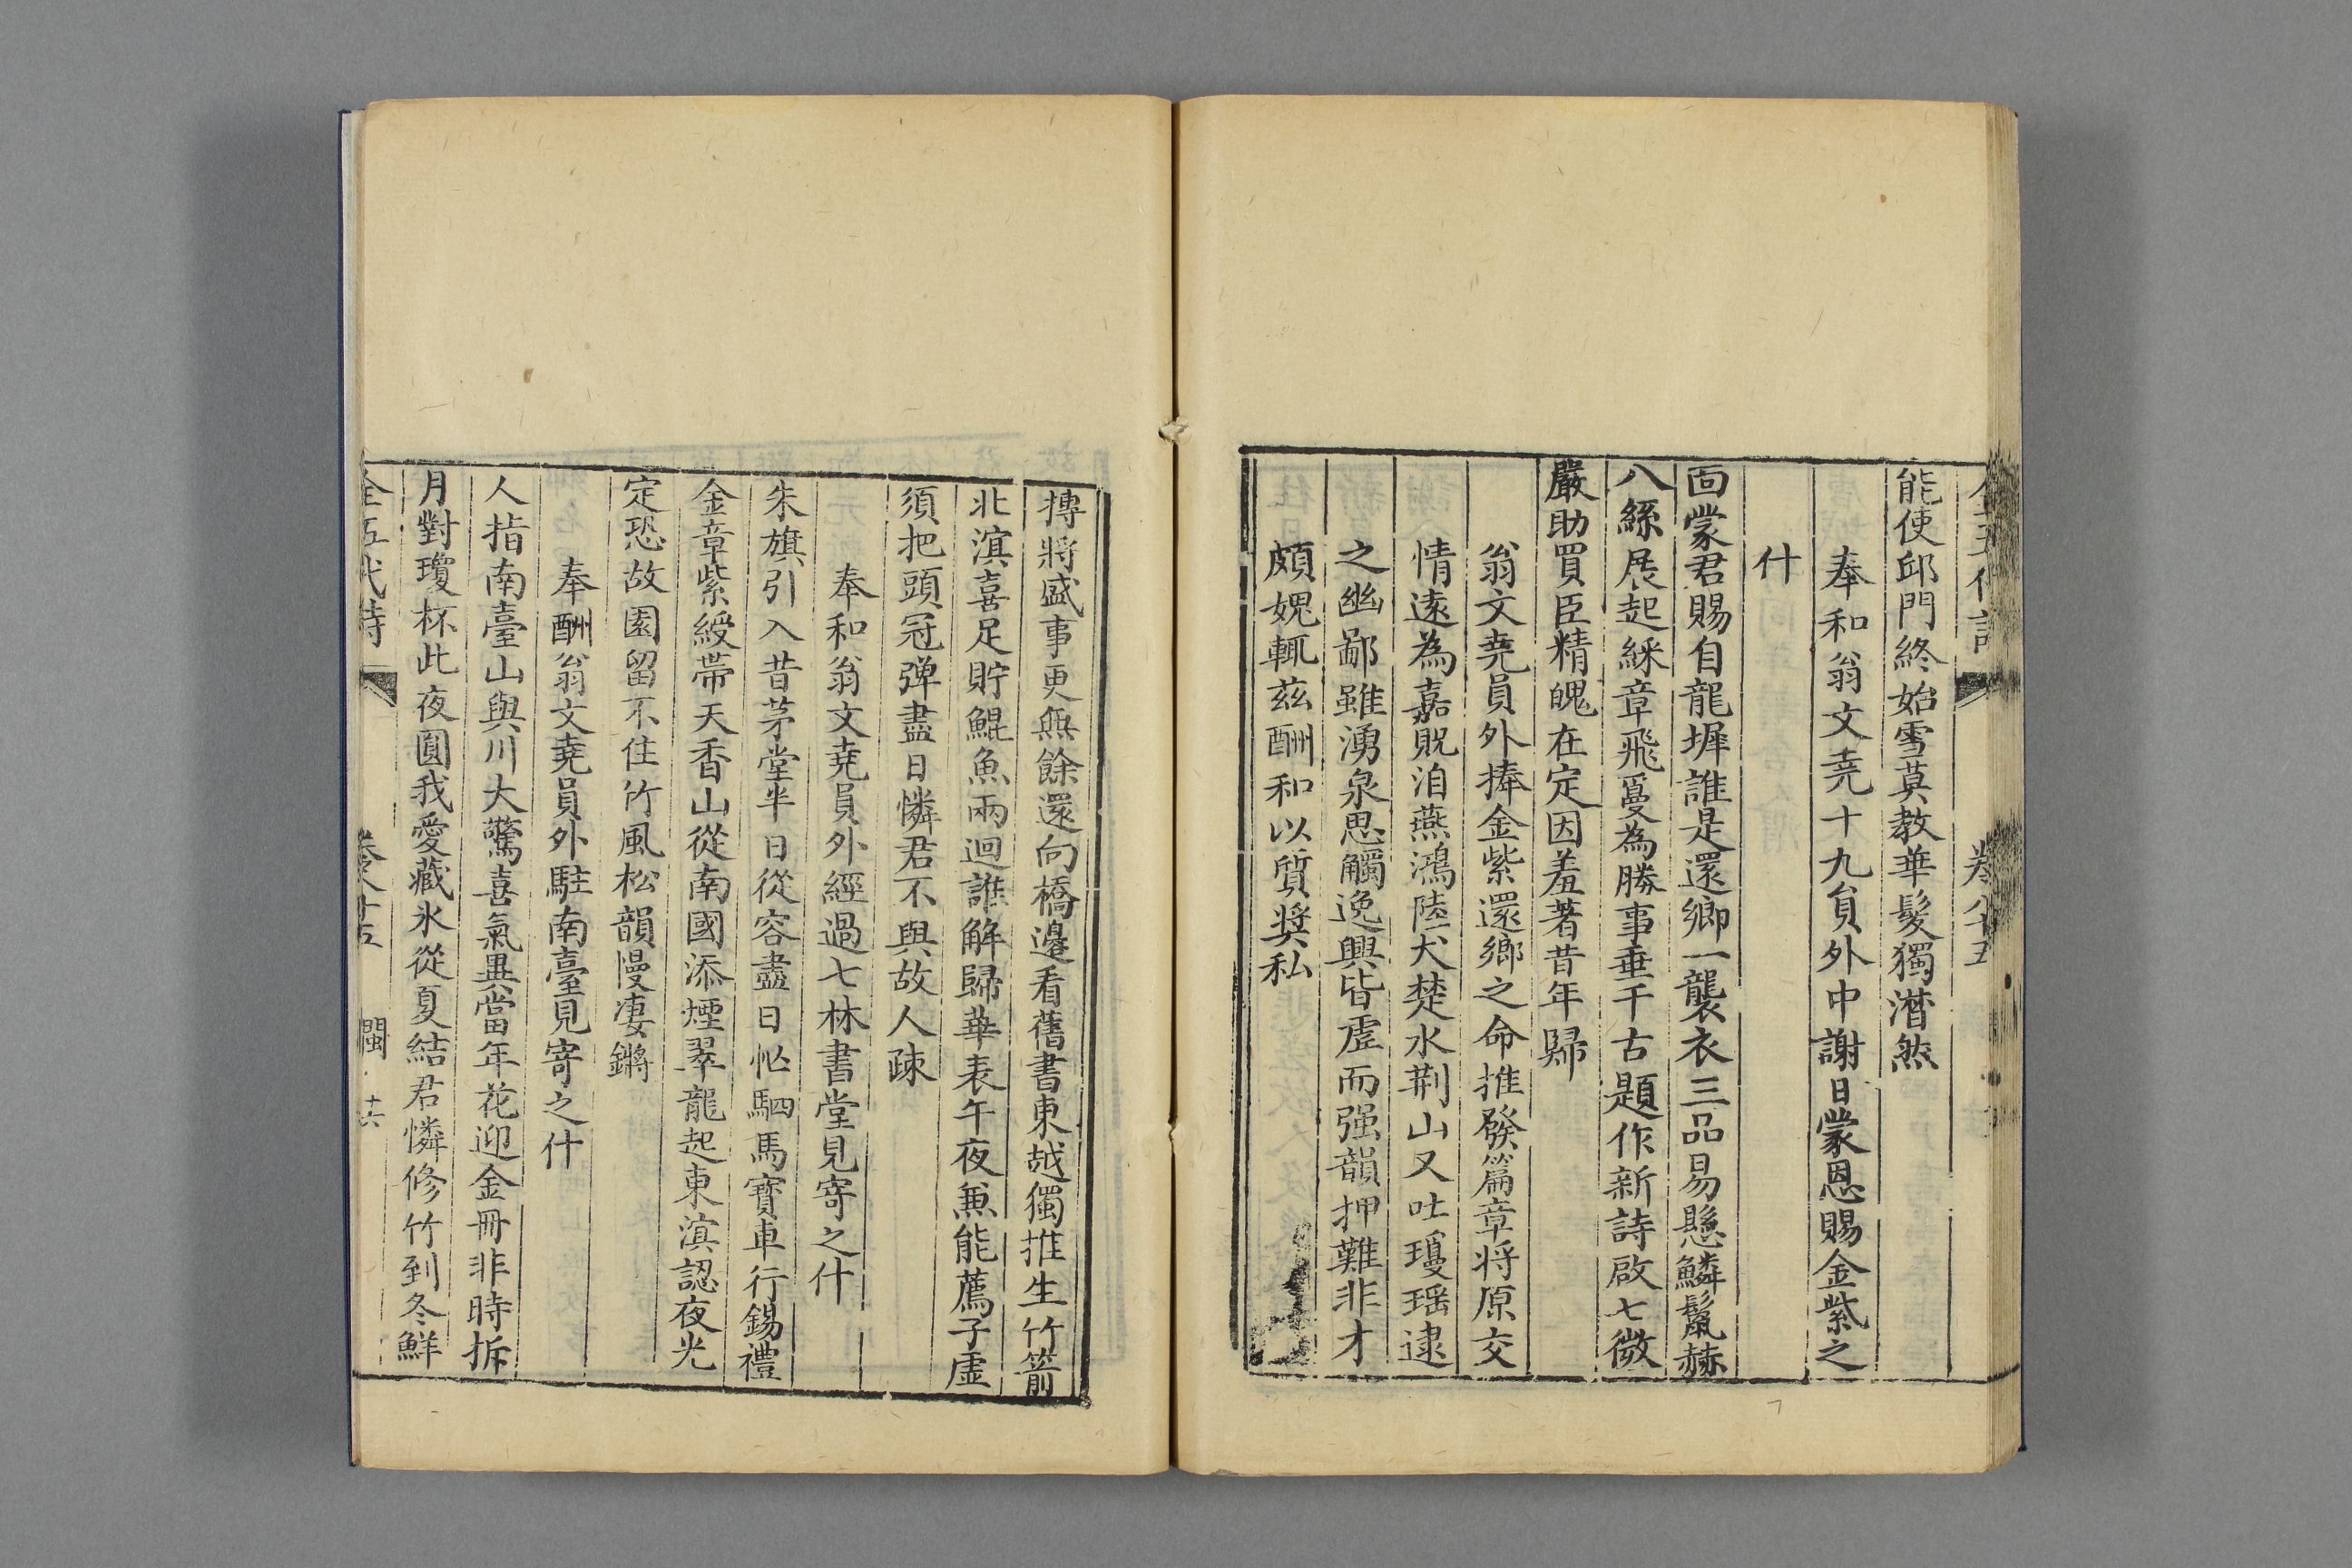 全五代詩 卷八十五
能使邱門終始雪莫教華髮獨潸然
奉和翁文堯十九員外中謝日蒙恩賜金紫之
什
面蒙君賜自龍墀誰是還鄉一襲衣三品易懸鱗鬣赫
八絲展起綵章飛𠭇為勝事垂千古題作新詩啟七微
嚴助買臣精魄在定因羞著昔年歸
翁文堯員外捧金紫還鄉之命推發篇章將原交
情遠為嘉貺洎燕鴻陸犬楚水荆山又吐瓊瑶逮
之幽鄙雖湧泉思觸逸興皆虛而强韻押難非才
頗媿輒兹酬和以質奨私
摶將盛事更無餘還向橋邊看舊書東越獨推生竹箭
北溟喜足貯鯤魚兩迴誰解歸華表午夜兼能薦子虛
須把頭冠弹盡日憐君不與故人疎
奉和翁文堯員外經過七林書堂見寄之什
朱旗引入昔茅堂半日從容盡日忙駟馬寶車行錫禮
金章紫綬帶天香山從南國添煙翠龍起東溟認夜光
定恐故園留不住竹風松韻慢凄鏘
奉酬翁文堯員外駐南臺見寄之什
人指南臺山與川大驚喜氣異當年花迎金冊非時拆
月對瓊杯此夜圓我愛藏氷從夏結君憐修竹到冬鮮
全五代詩 卷八十五 閩 十六